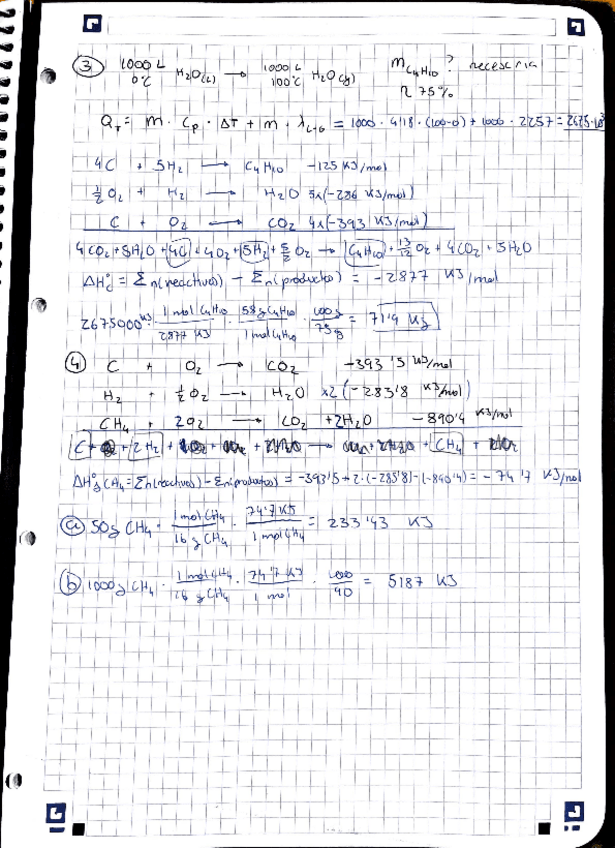 ③ 1000 L 0°C H₂O(l) → 1000 L 100°C H₂O(g) m C₄H₁₀? necesaria
η 75%
Qт = m · Cp · ΔT + m · λL-G = 1000 · 4'18 · (100-0) + 1000 · 2257 = 2675·10³
4C + 5H₂ → C₄H₁₀ -125 KJ/mol
½O₂ + H₂ → H₂O 5x(-286 KJ/mol)
C + O₂ → CO₂ 4x(-393 KJ/mol)
4CO₂ + 5H₂O + 4C + 4O₂ + 5H₂ + 5/2 O₂ → C₄H₁₀ + 13/2 O₂ + 4CO₂ + 5H₂O
ΔH°c = Σn(reactivos) - Σn(productos) = -2877 KJ/mol
2675000 KJ · 1 mol C₄H₁₀/2877 KJ · 58g C₄H₁₀/1 mol C₄H₁₀ · 100g/75g = 71'9 Kg
④ C + O₂ → CO₂ -393'5 KJ/mol
H₂ + ½O₂ → H₂O x2 (-283'8 KJ/mol)
CH₄ + 2O₂ → CO₂ + 2H₂O -890'4 KJ/mol
C + 2H₂ + → + CH₄ +
ΔH°f CH₄ = Σn(reactivos) - Σn(productos) = -393'5 + 2·(-285'8) - (-890'4) = -74'7 KJ/mol
ⓐ 50g CH₄ · 1 mol CH₄/16 g CH₄ · 74'7 KJ/1 mol CH₄ = 233'43 KJ
ⓑ 1000g CH₄ · 1 mol CH₄/16 g CH₄ · 74'7 KJ/1 mol · /90 = 5187 KJ